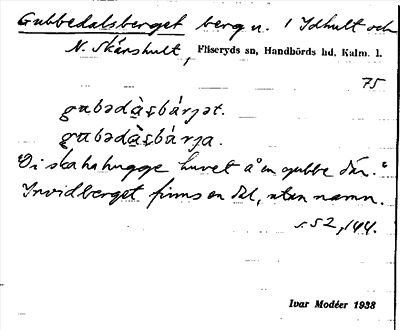 Gubbedalsberget berg n. i Idhult och
N. Skärshult, Fliseryds sn, Handbörds hd, Kalm. l.
75
gubədàʂbárjət.
gubədàʂbárja.
"Di ska ha hugge huvet å en gubbe där."
Invid berget finns en dal, utan namn.
s. 52, 144.
Ivar Modéer 1938